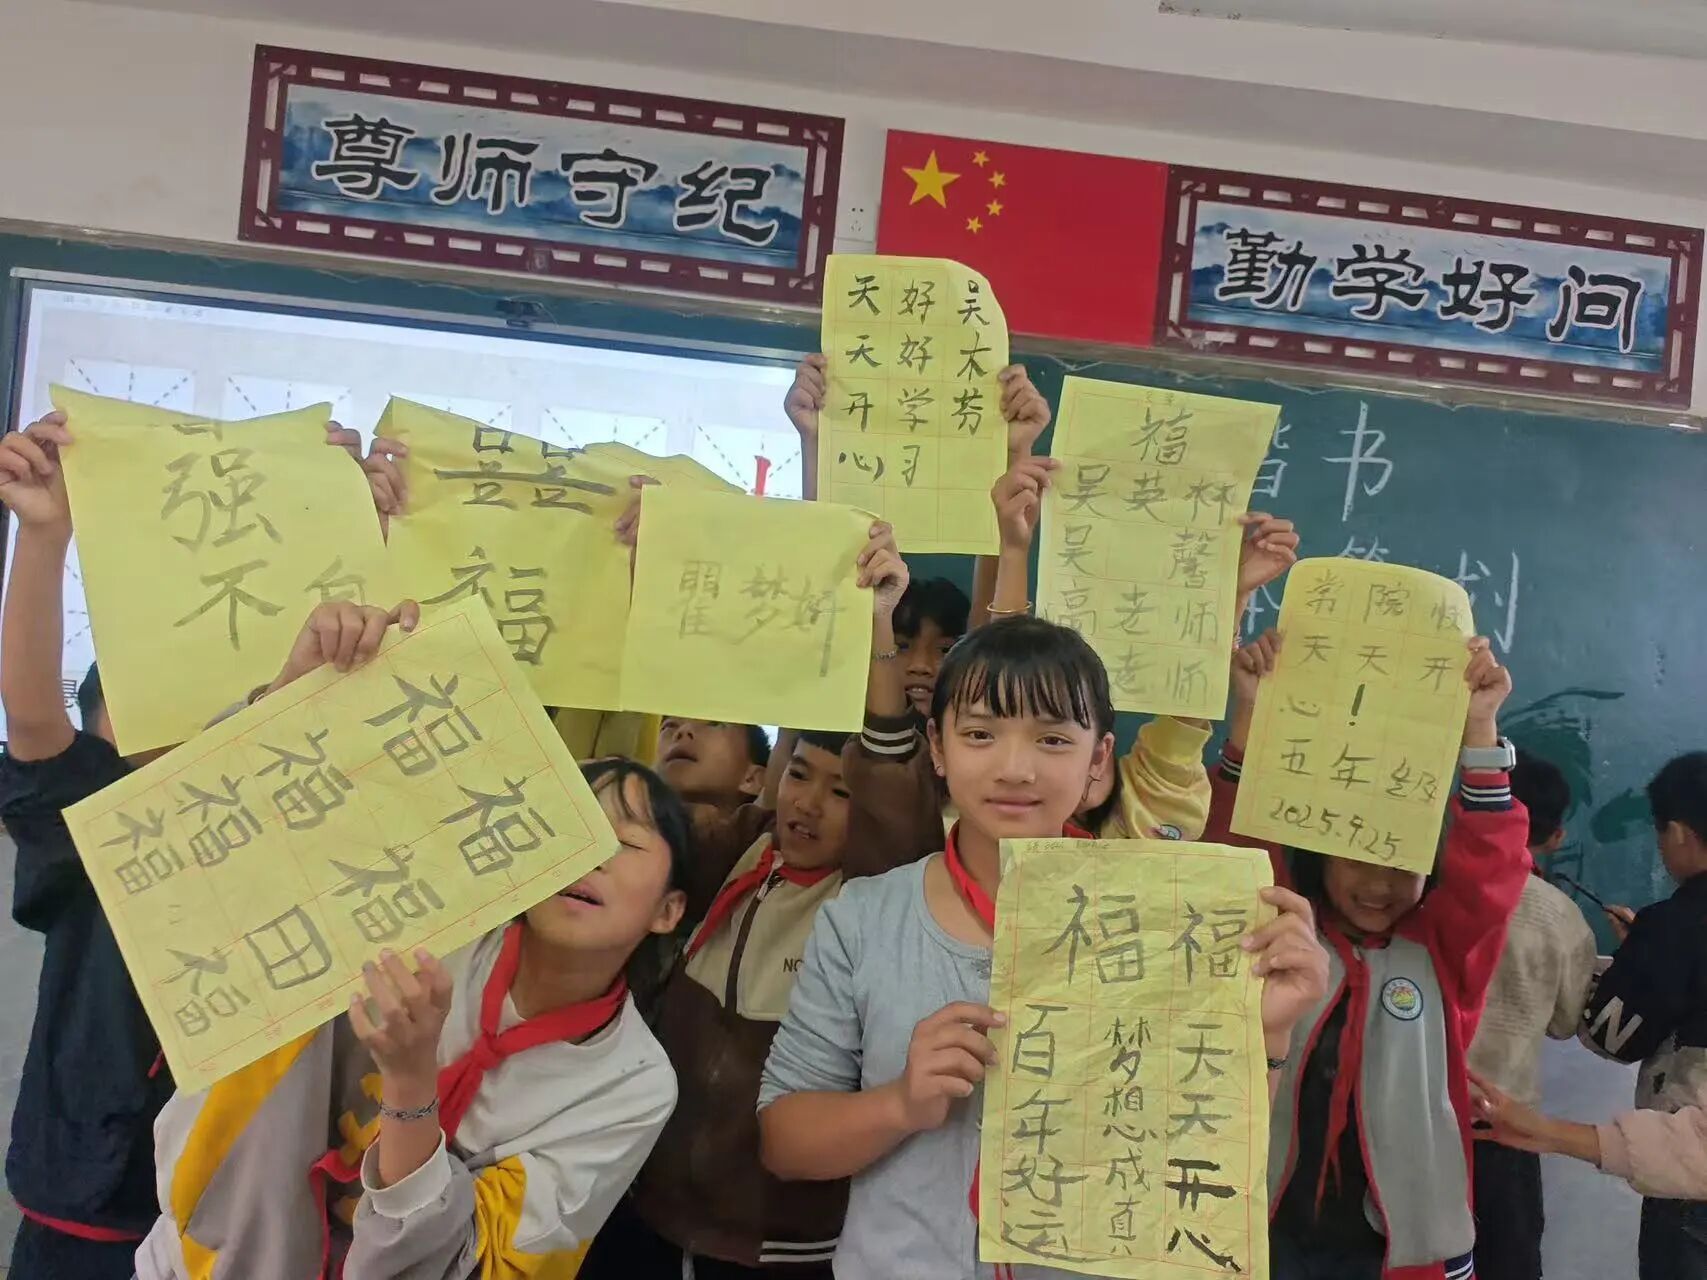 尊师守纪
勤学好问
天天开心
好好学习
吴木芬
福
吴英林
吴 馨
高老师
老师
强
不 自
囍
福
翟梦妍
楷书
划
常院快
天天开
心！
五年级
2025.9.25
福福福福
福福福田
福
福福
百年好运
梦想成真
天天开心